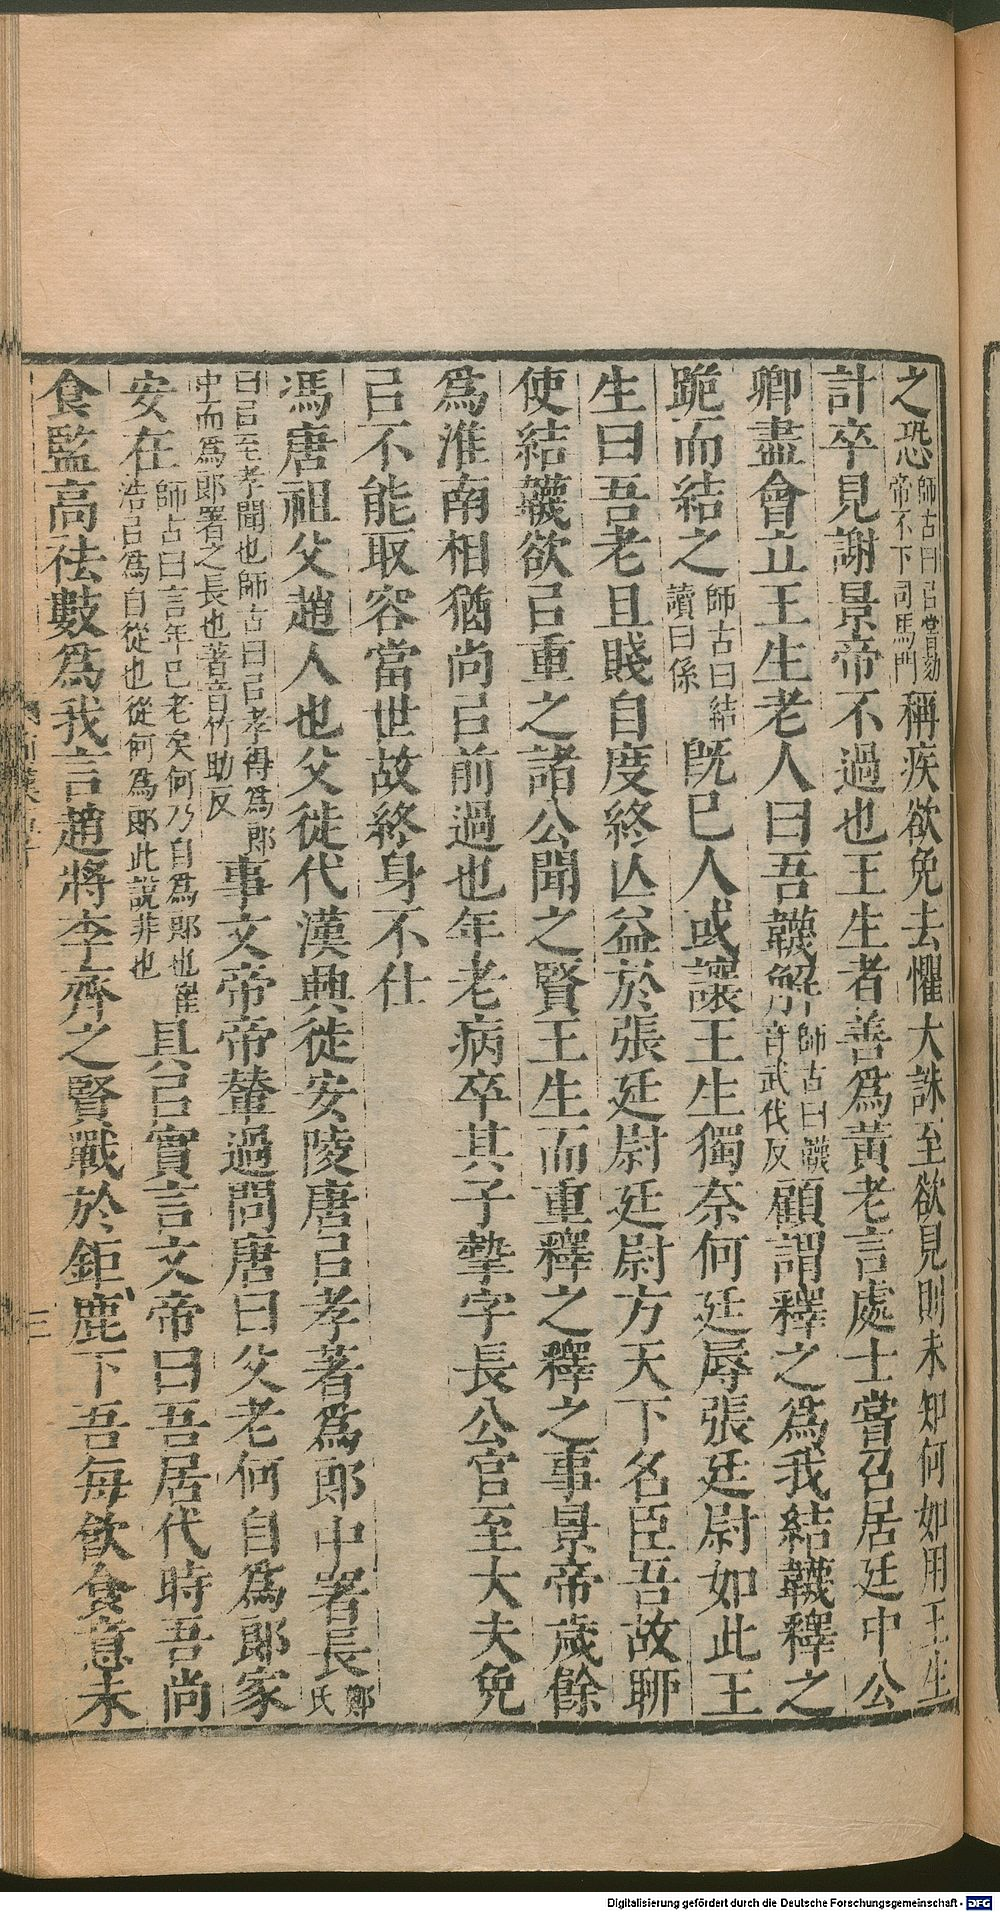 之恐師古曰㠯嘗劾帝不下司馬門稱疾欲免去懼大誅至欲見則未知何如用王生
計卒見謝景帝不過也王生者善爲黃老言處士嘗召居廷中公
卿盡會立王生老人曰吾韤解師古曰韤音武伐反顧謂釋之爲我結韤釋之
跪而結之師古曰結讀曰係旣已人或讓王生獨奈何廷辱張廷尉如此王
生曰吾老且賤自度終亾益於張廷尉廷尉方天下名臣吾故聊
使結韤欲㠯重之諸公聞之賢王生而重釋之釋之事景帝歲餘
爲淮南相猶尚㠯前過也年老病卒其子摯字長公官至大夫免
㠯不能取容當世故終身不仕
馮唐祖父趙人也父徙代漢興徙安陵唐㠯孝著爲郎中署長鄭氏
曰㠯至孝聞也師古曰㠯孝得爲郎中而爲郎署之長也著音竹助反事文帝帝輦過問唐曰父老何自爲郎家
安在師古曰言年已老矣何乃自爲郎也崔浩㠯爲自從也從何爲郎此說非也具㠯實言文帝曰吾居代時吾尚
食監高祛數爲我言趙將李齊之賢戰於鉅鹿下吾每飲食意未
三
Digitalisierung gefördert durch die Deutsche Forschungsgemeinschaft - DFG